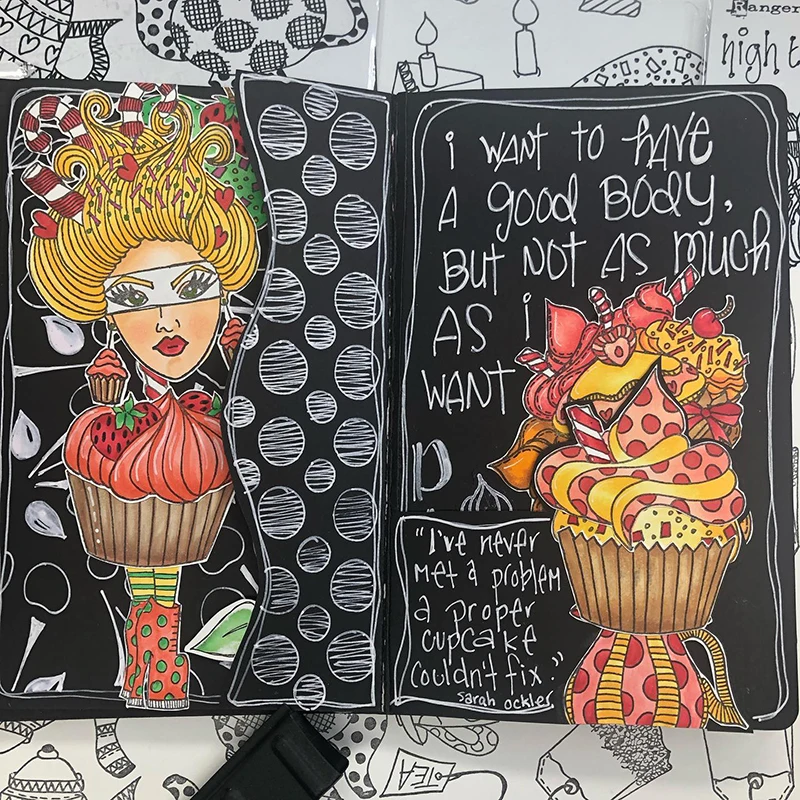 Ranger
high t
i WANT to hAVE
A good BODy,
BUT NOT AS much
AS i
WANT
D
"I've never
met a problem
a proper
cupcake
couldn't fix."
sarah ockler
TEA